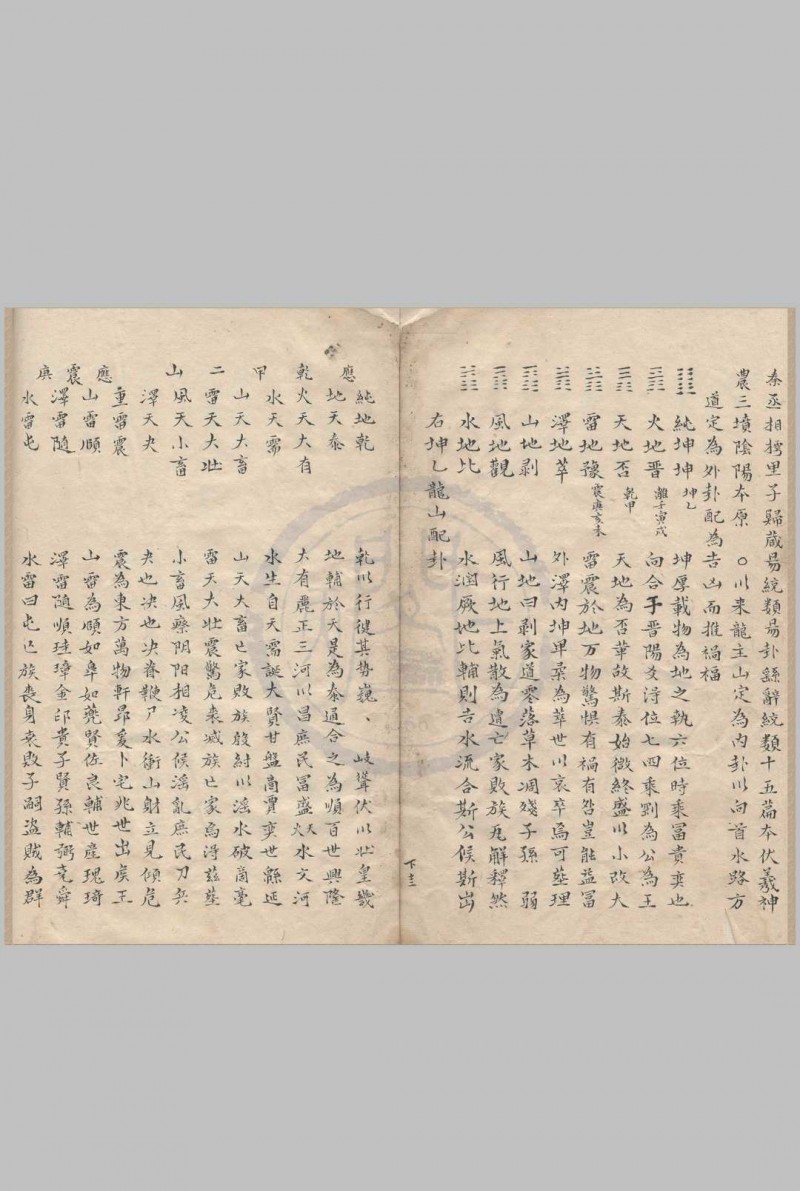 秦丞相樗里子歸藏易統類易卦繇辭統類十五篇本伏羲神
農三墳陰陽本原 ○以来龍主山定為內卦以向首水路方
道定為外卦配為吉凶而推禍福
純坤坤 坤乙 坤厚載物為地之執六位時乘冨貴奕也
火地晋 離壬寅戌 向合于晋陽爻淂位七四乘剛為公為王
天地否 乾甲 天地為否華故斯泰始微終盛以小改大
雷地豫 震庚亥未 雷震於地万物驚惧有禍有咎豈能益冨
澤地萃 外澤內坤卑柔為萃世以哀卒焉可塟理
山地剥 山地曰剥家道零落草木凋殘子孫 弱
風地觀 風行地上氣散為遺亡家敗族瓦解釋然
水地比 水润厥地比輔則吉水流合斯公候斯出
右坤乙龍山配卦
下三
應 純地乾 乾以行健其势巍、 岐聳伏以壯皇畿
地天泰 地輔於天是為泰通合之為順百世興隆
乾 火天大有 大有麗正三河以昌庶民冨盛天水文河
甲 水天需 水生自天需誕大賢甘盤商賈奕世緜延
山天大畜 山天大畜亡家敗族殷紂以滛水破商毫
二 雷天大壯 雷天大壯震驚危喪滅族亡家焉淂玆塟
山 風天小畜 小畜風癈阴阳相凌公候滛亂庶民刀兵
澤天夬 夬也决也决脊鞭尸水衝山射立見傾危
應 重雷震 震為東方萬物軒昂爰卜宅兆世出矦王
震 山雷頤 山雷為頤如阜如甍賢佐良輔世産瑰琦
澤雷隨 澤雷隨順珪璋金印貴子賢孫輔弼尭舜
庚 水雷屯 水雷曰屯亡族喪身衰敗子嗣盗賊為群